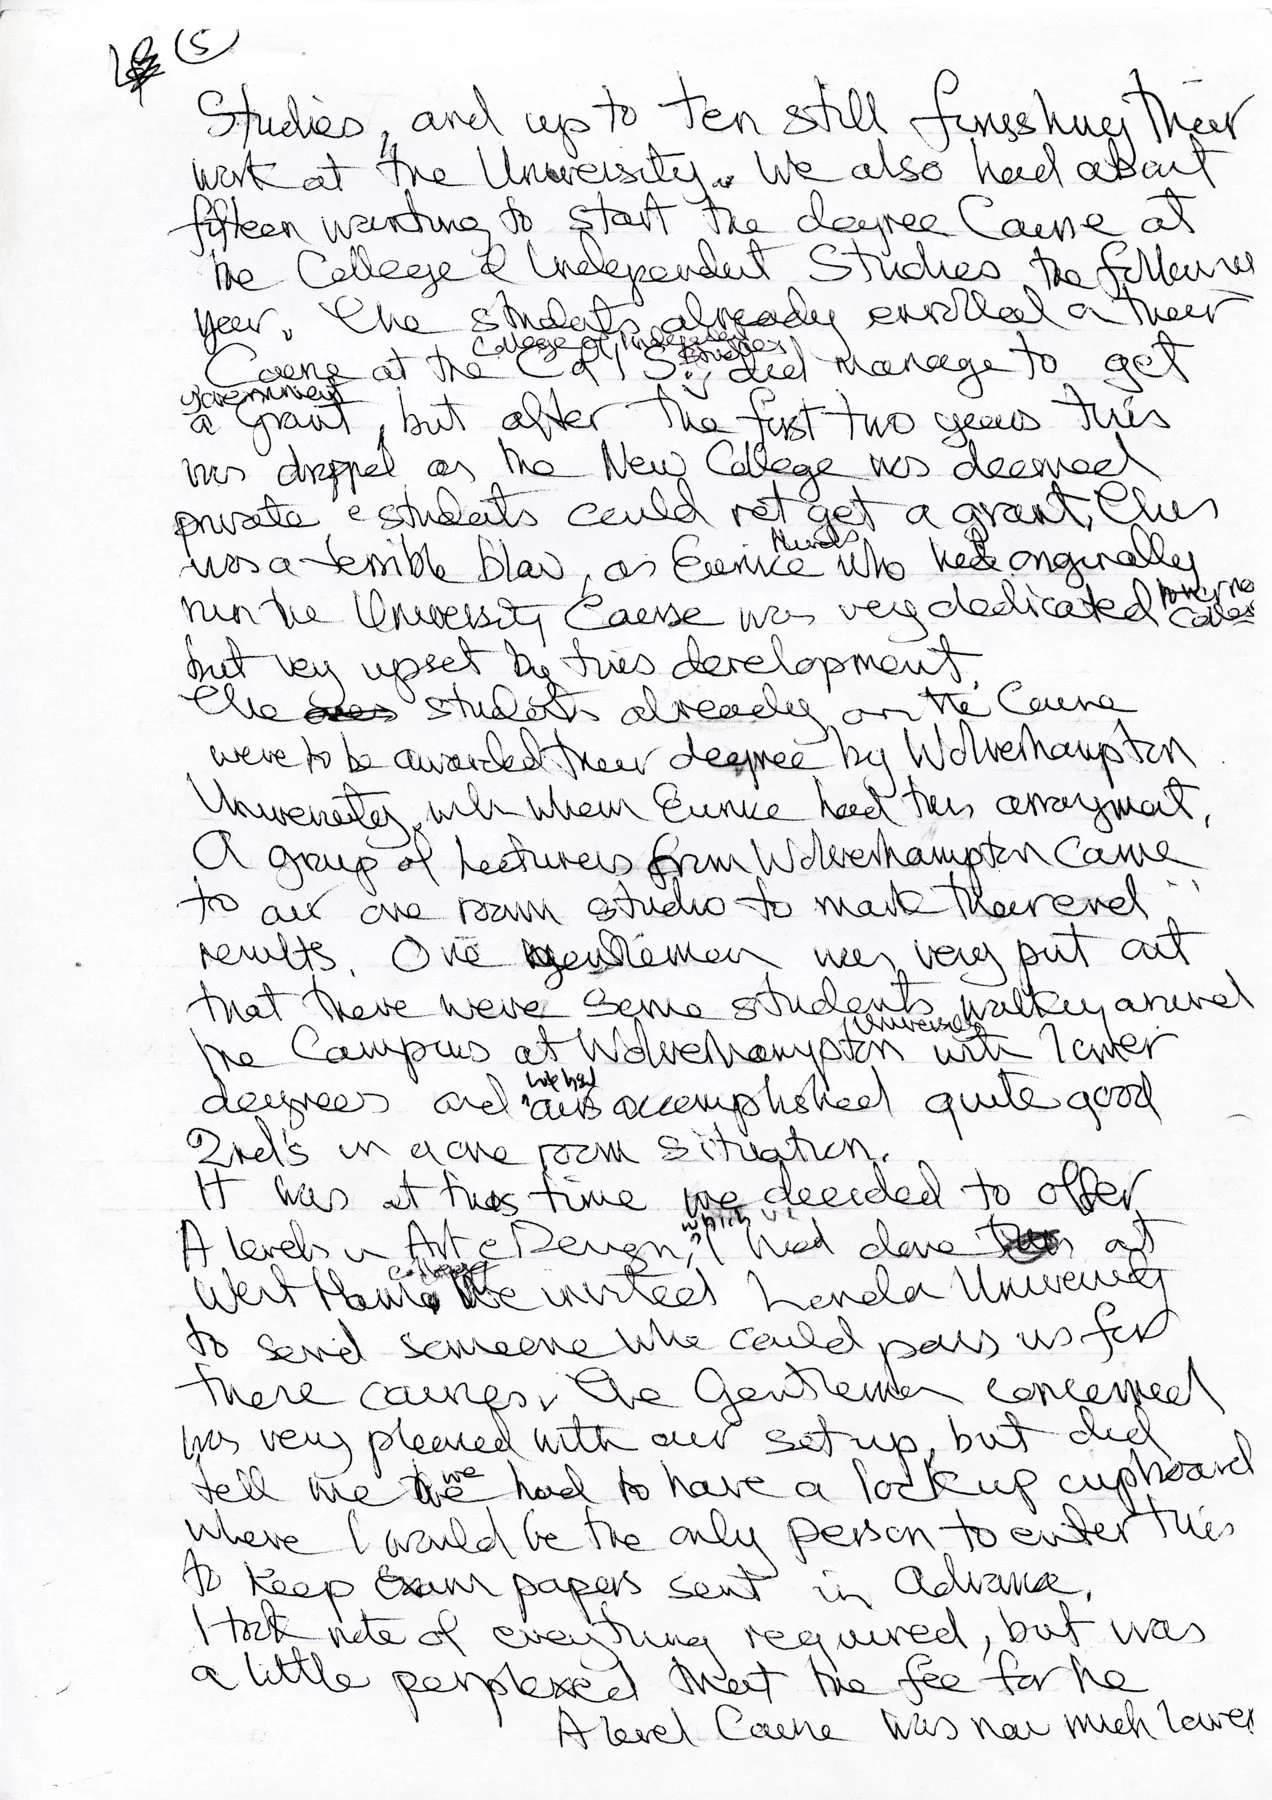 (5)
Studies, and up to Ten still finishing their
work at the University. We also had about
fifteen wanting to start the degree Course at
the College of Independent Studies the following
year. The students already enrolled on their
College of Independent Studies
Course at the C of I S. did manage to get
government
a grant, but after the first two years this
was dropped as the New College was deemed
private & students could not get a grant. This
was a terrible blow, as Eunice who had originally
run the University Course was very dedicated to the
College
but very upset by this development.
The students already on the Course
were to be awarded their degree by Wolverhampton
University, with whom Eunice had this arrangment.
A group of Lecturers from Wolverhampton Came
to our one room studio to mark their end
results. One gentleman was very put out
that there were some students walking around
University
the Campus at Wolverhampton with lower
we had
degrees and accomplished quite good
2nd's in a one room situation.
It was at this time we decided to offer
which
A levels in Art & Design, I had done at
College
West Ham. We invited London University
to send someone who could pass us for
these courses. The Gentleman concerned
was very pleased with our set up, but did
we
tell me had to have a lock up cupboard
where I would be the only person to enter this
to keep Exam papers sent in advance.
I took note of everything required, but was
a little perplexed that the fee for the
A level Course was now much lower